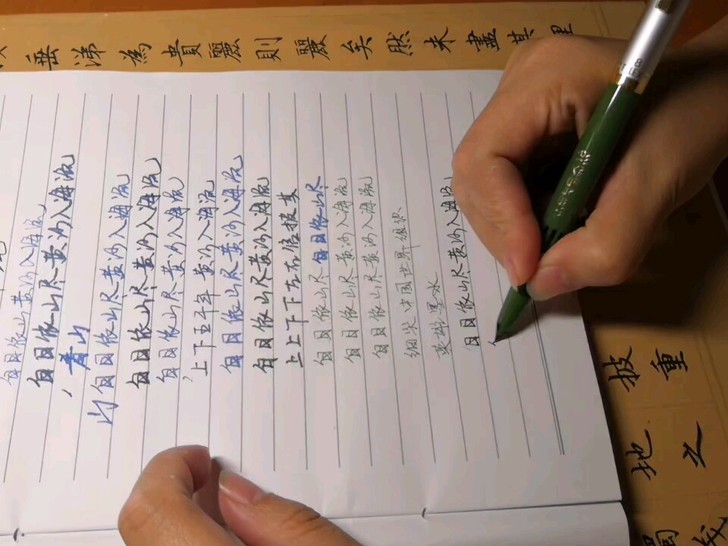 岳涕為貴麗則嚴矣然未盡其里
白日依山尽黄河入海流
白日依山尽黄河入海流
看山
山白日依山尽黄河入海流
白日依山尽黄河入海流
白日依山尽黄河入海流
上下五千年 黄河入海流
白日依山尽黄河入海流
白日依山尽黄河入海流
上上下下左右
白日依山尽 白日依山尽
白日依山尽黄河入海流
白日依山尽黄河入海流
细尖 中国世界
英雄墨水
白日依山尽黄河入海流
重之
披地